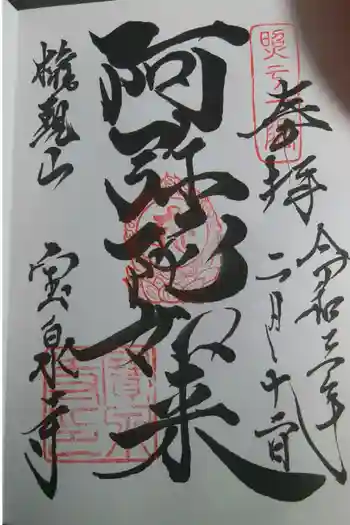 奉拝
令和三年
二月十二日
阿弥陀如来
山
宝泉寺